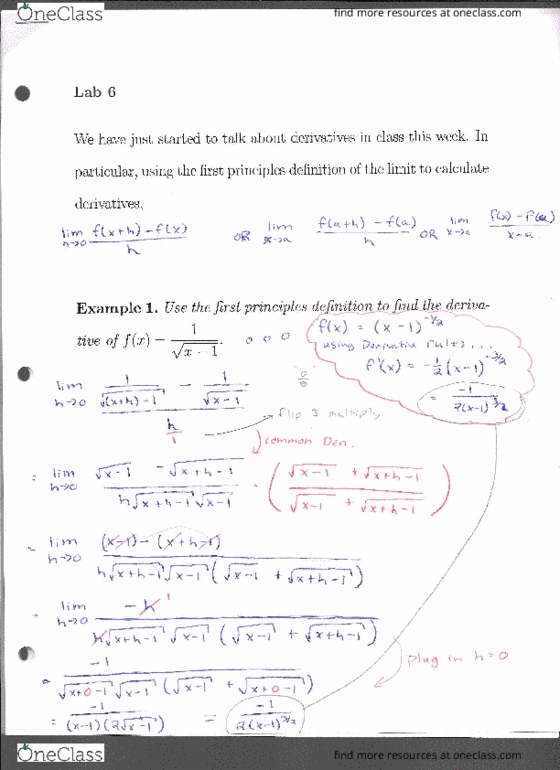 OneClass
find more resources at oneclass.com
Lab 6
We have just started to talk about derivatives in class this week. In
particular, using the first principles definition of the limit to calculate
derivatives,
lim h→0 (f(x+h) - f(x))/h OR lim x→a (f(a+h) - f(a))/h OR lim x→a (f(x) - f(a))/(x-a).
Example 1. Use the first principles definition to find the deriva-
tive of f(x) = 1/√(x-1).
f(x) = (x-1)^(-1/2)
using Derivative rules...
f'(x) = -1/2 (x-1)^(-3/2)
= -1/(2(x-1)^(3/2))
lim h→0 (1/√((x+h)-1) - 1/√(x-1))/(h/1)
0/0
flip & multiply
common Den.
= lim h→0 (√(x-1) - √(x+h-1))/(h√(x+h-1)√(x-1)) · ((√(x-1) + √(x+h-1))/(√(x-1) + √(x+h-1)))
= lim h→0 ((x-1) - (x+h-1))/(h√(x+h-1)√(x-1)(√(x-1) + √(x+h-1)))
lim h→0 -h/(h√(x+h-1)√(x-1)(√(x-1) + √(x+h-1)))
1
plug in h=0
= -1/(√(x+0-1)√(x-1)(√(x-1) + √(x+0-1)))
= -1/((x-1)(2√(x-1))) = -1/(2(x-1)^(3/2))
OneClass
find more resources at oneclass.com